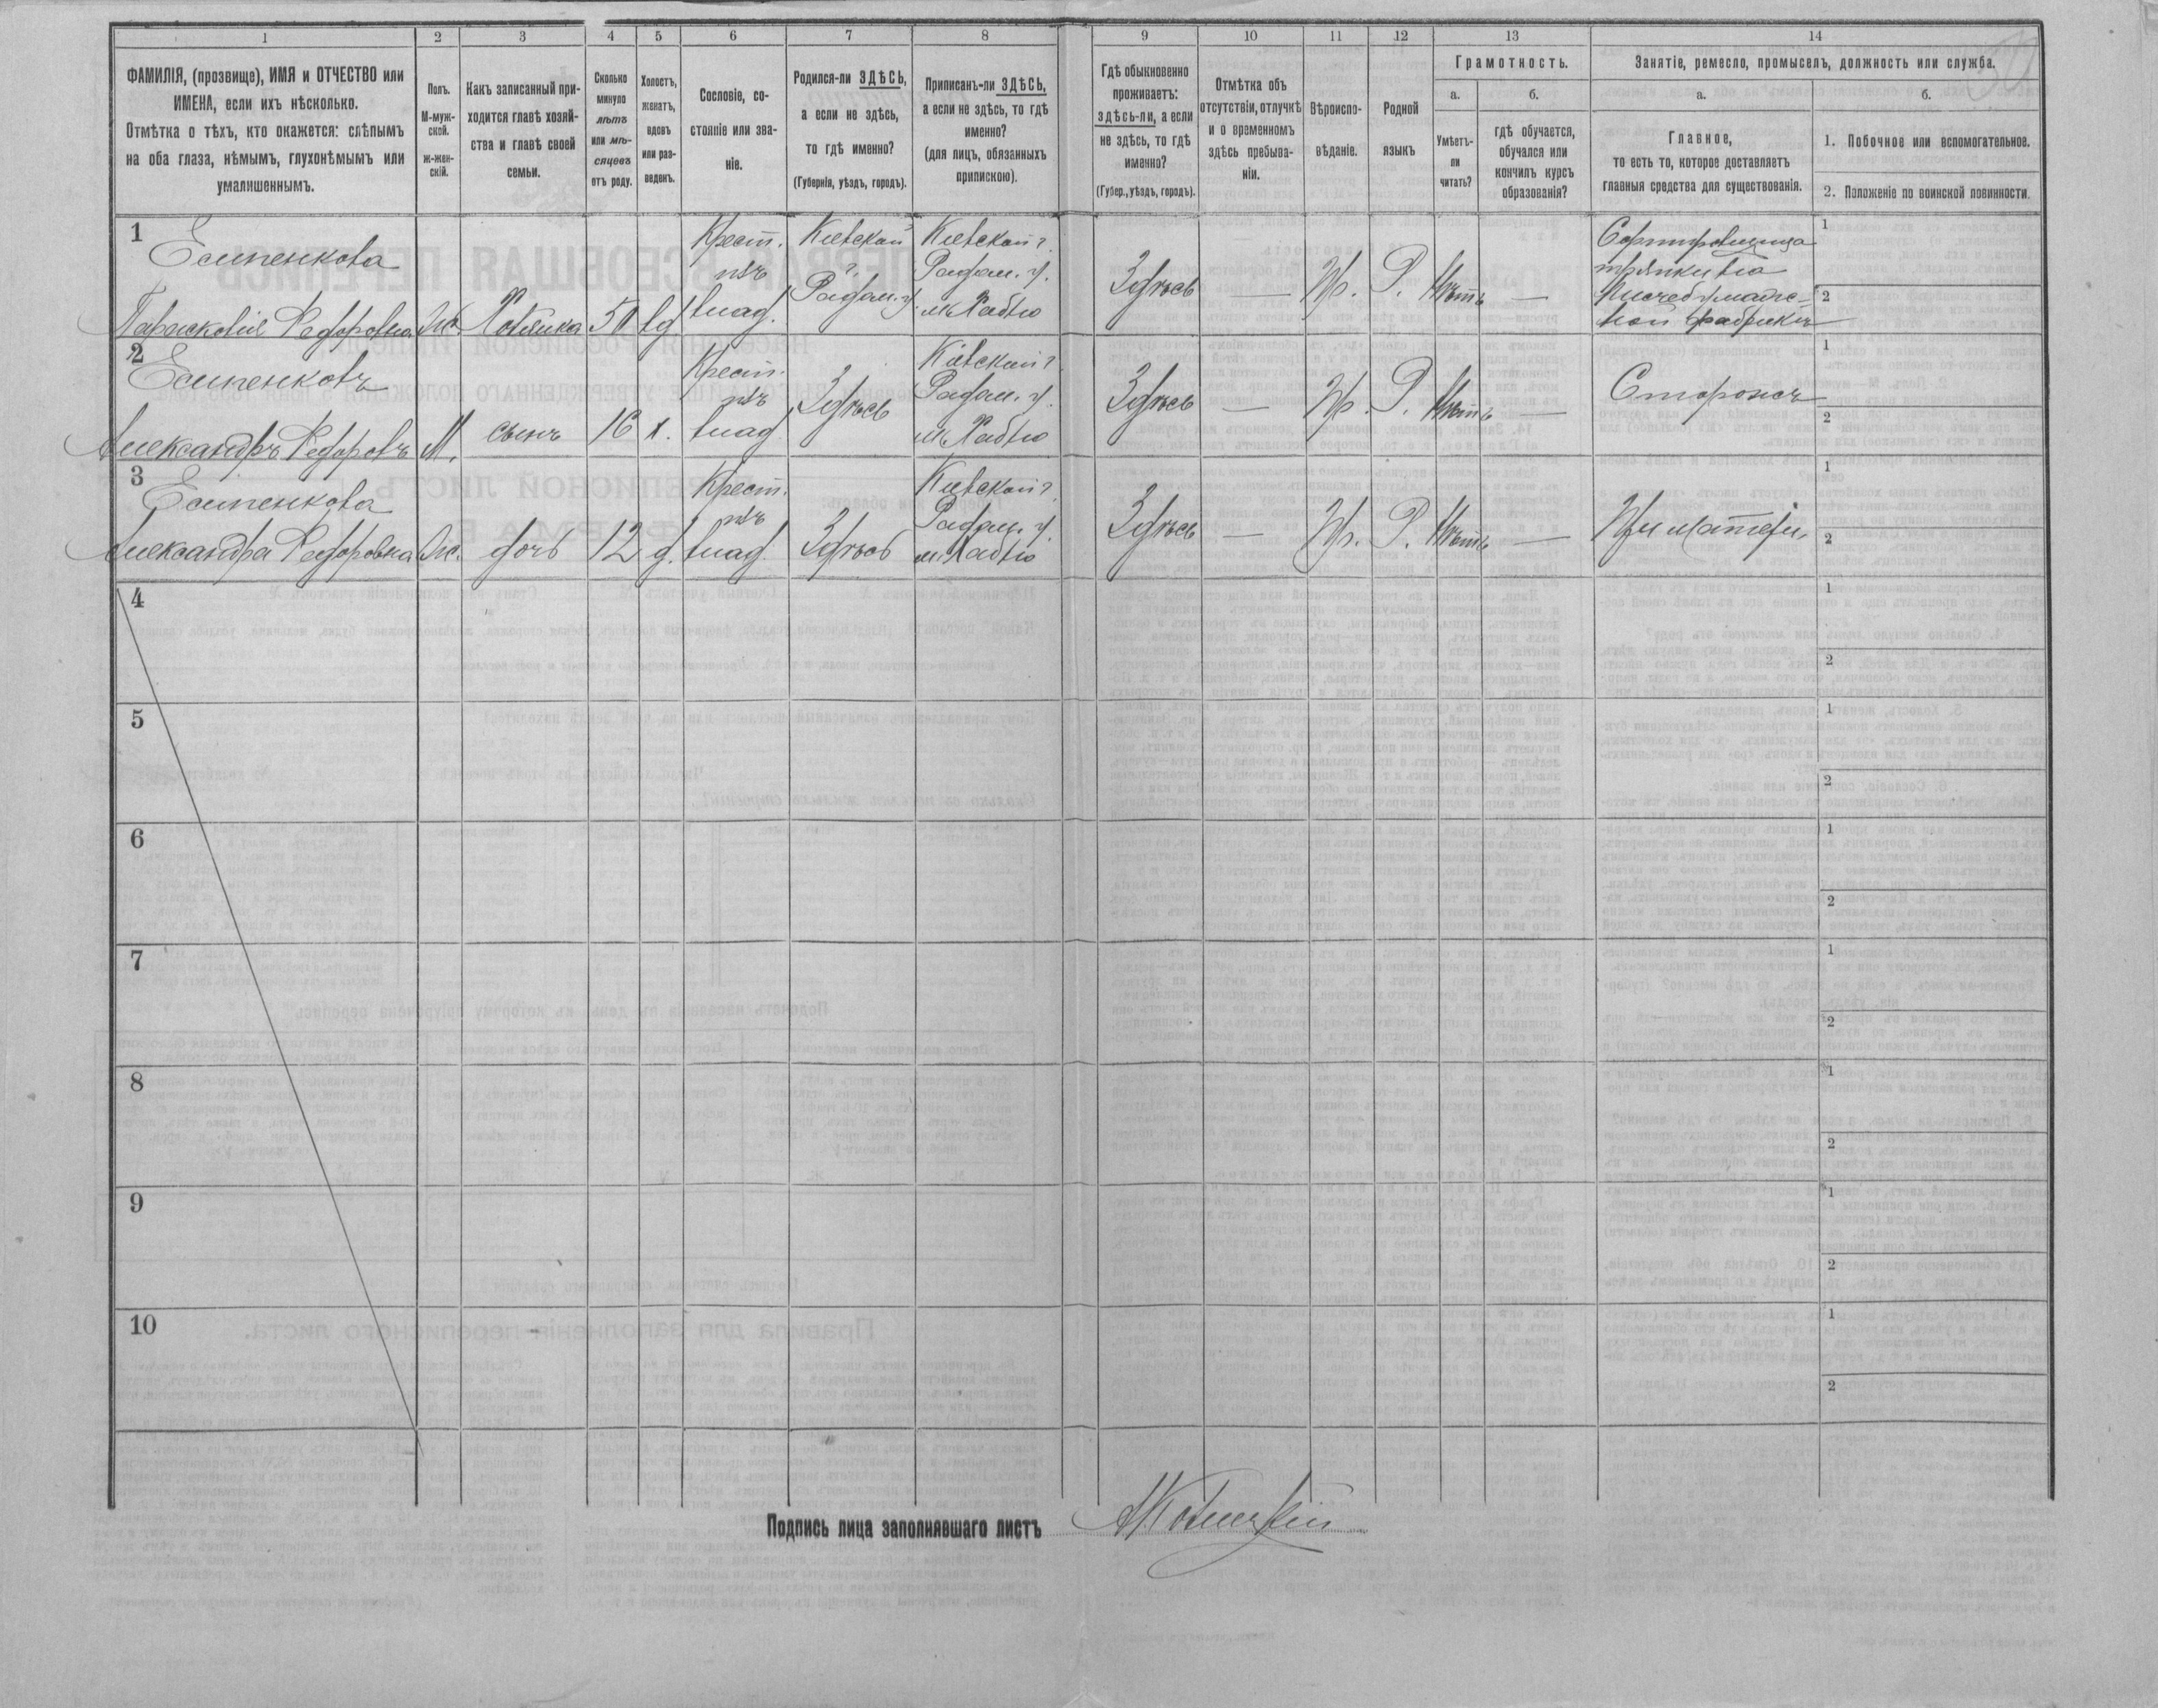 1 2 3 4 5 6 7 8 9 10 11 12 13 14
ФАМИЛІЯ, (прозвище), ИМЯ и ОТЧЕСТВО или
ИМЕНА, если ихъ нѣсколько.
Отмѣтка о тѣхъ, кто окажется: слѣпымъ
на оба глаза, нѣмымъ, глухонѣмымъ или
умалишеннымъ.
Полъ.
М-муж-
ской.
ж-жен-
скій.
Какъ записанный при-
ходится главѣ хозяй-
ства и главѣ своей
семьи.
Сколько
минуло
лѣтъ
или мѣ-
сяцевъ
отъ роду.
Холостъ,
женатъ,
вдовъ
или раз-
веденъ.
Сословіе, со-
стояніе или зва-
ніе.
Родился-ли ЗДѢСЬ,
а если не здѣсь,
то гдѣ именно?
(Губернія, уѣздъ, городъ).
Приписанъ-ли ЗДѢСЬ,
а если не здѣсь, то гдѣ
именно?
(для лицъ, обязанныхъ
припискою).
Гдѣ обыкновенно
проживаетъ:
здѣсь-ли, а если
не здѣсь, то гдѣ
именно?
(Губер., уѣздъ, городъ).
Отмѣтка объ
отсутствіи, отлучкѣ
и о временномъ
здѣсь пребыва-
ніи.
Вѣроиспо-
вѣданіе.
Родной
языкъ
Грамотность.
а.
Умѣетъ-
ли
читать?
б.
гдѣ обучается,
обучался или
кончилъ курсъ
образованія?
Занятіе, ремесло, промыселъ, должность или служба.
а.
Главное,
то есть то, которое доставляетъ
главныя средства для существованія.
б.
1. Побочное или вспомогательное.
2. Положеніе по воинской повинности.
1
Есипенкова
Параскевія Федоровна
Ж.
Хозяйка
50
вд.
Крест.
изъ
влад.
Кіевской
г.
Радом. у.
Кіевской г.
Радом. у.
м. Хабно
Здѣсь
—
Пр.
Р.
Нѣтъ
—
Сортировщица
тряпки на
писчебумаж-
ной фабрикѣ
1
2
2
Есипенковъ
Александръ Федоровъ
М.
сынъ
16
х.
Крест.
изъ
влад.
Здѣсь
Кіевской г.
Радом. у.
м. Хабно
Здѣсь
—
Пр.
Р.
Нѣтъ
—
Сторожъ
1
2
3
Есипенкова
Александра Федоровна
Ж.
дочь
12
д.
Крест.
изъ
влад.
Здѣсь
Кіевской г.
Радом. у.
м. Хабно
Здѣсь
—
Пр.
Р.
Нѣтъ
—
При матери.
1
2
4
1
2
5
1
2
6
1
2
7
1
2
8
1
2
9
1
2
10
1
2
Подпись лица заполнявшаго листъ